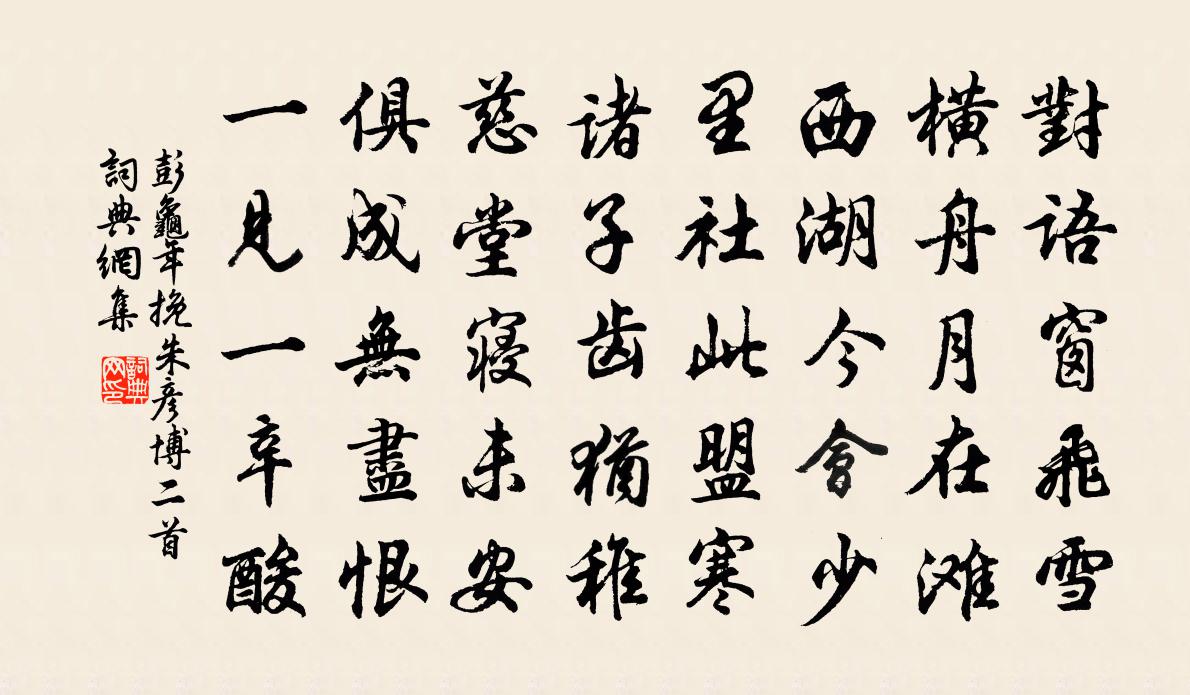 對語窗飛雪
橫舟月在滩
西湖今會少
里社此盟寒
诸子齿猶稚
慈堂寝未安
俱成無盡恨
一見一辛酸
彭龜年挽朱彦博二首
詞典網集
詞典网印